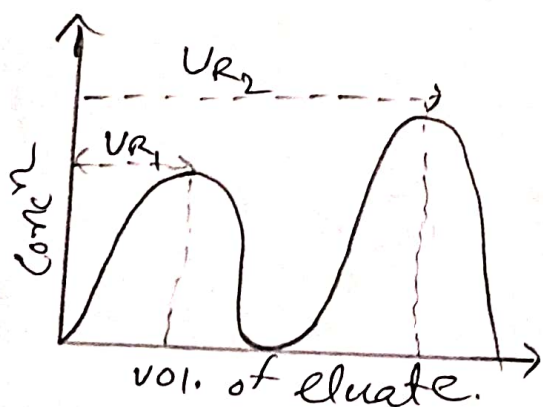 VR₂
VR₁
Concⁿ
vol. of eluate.